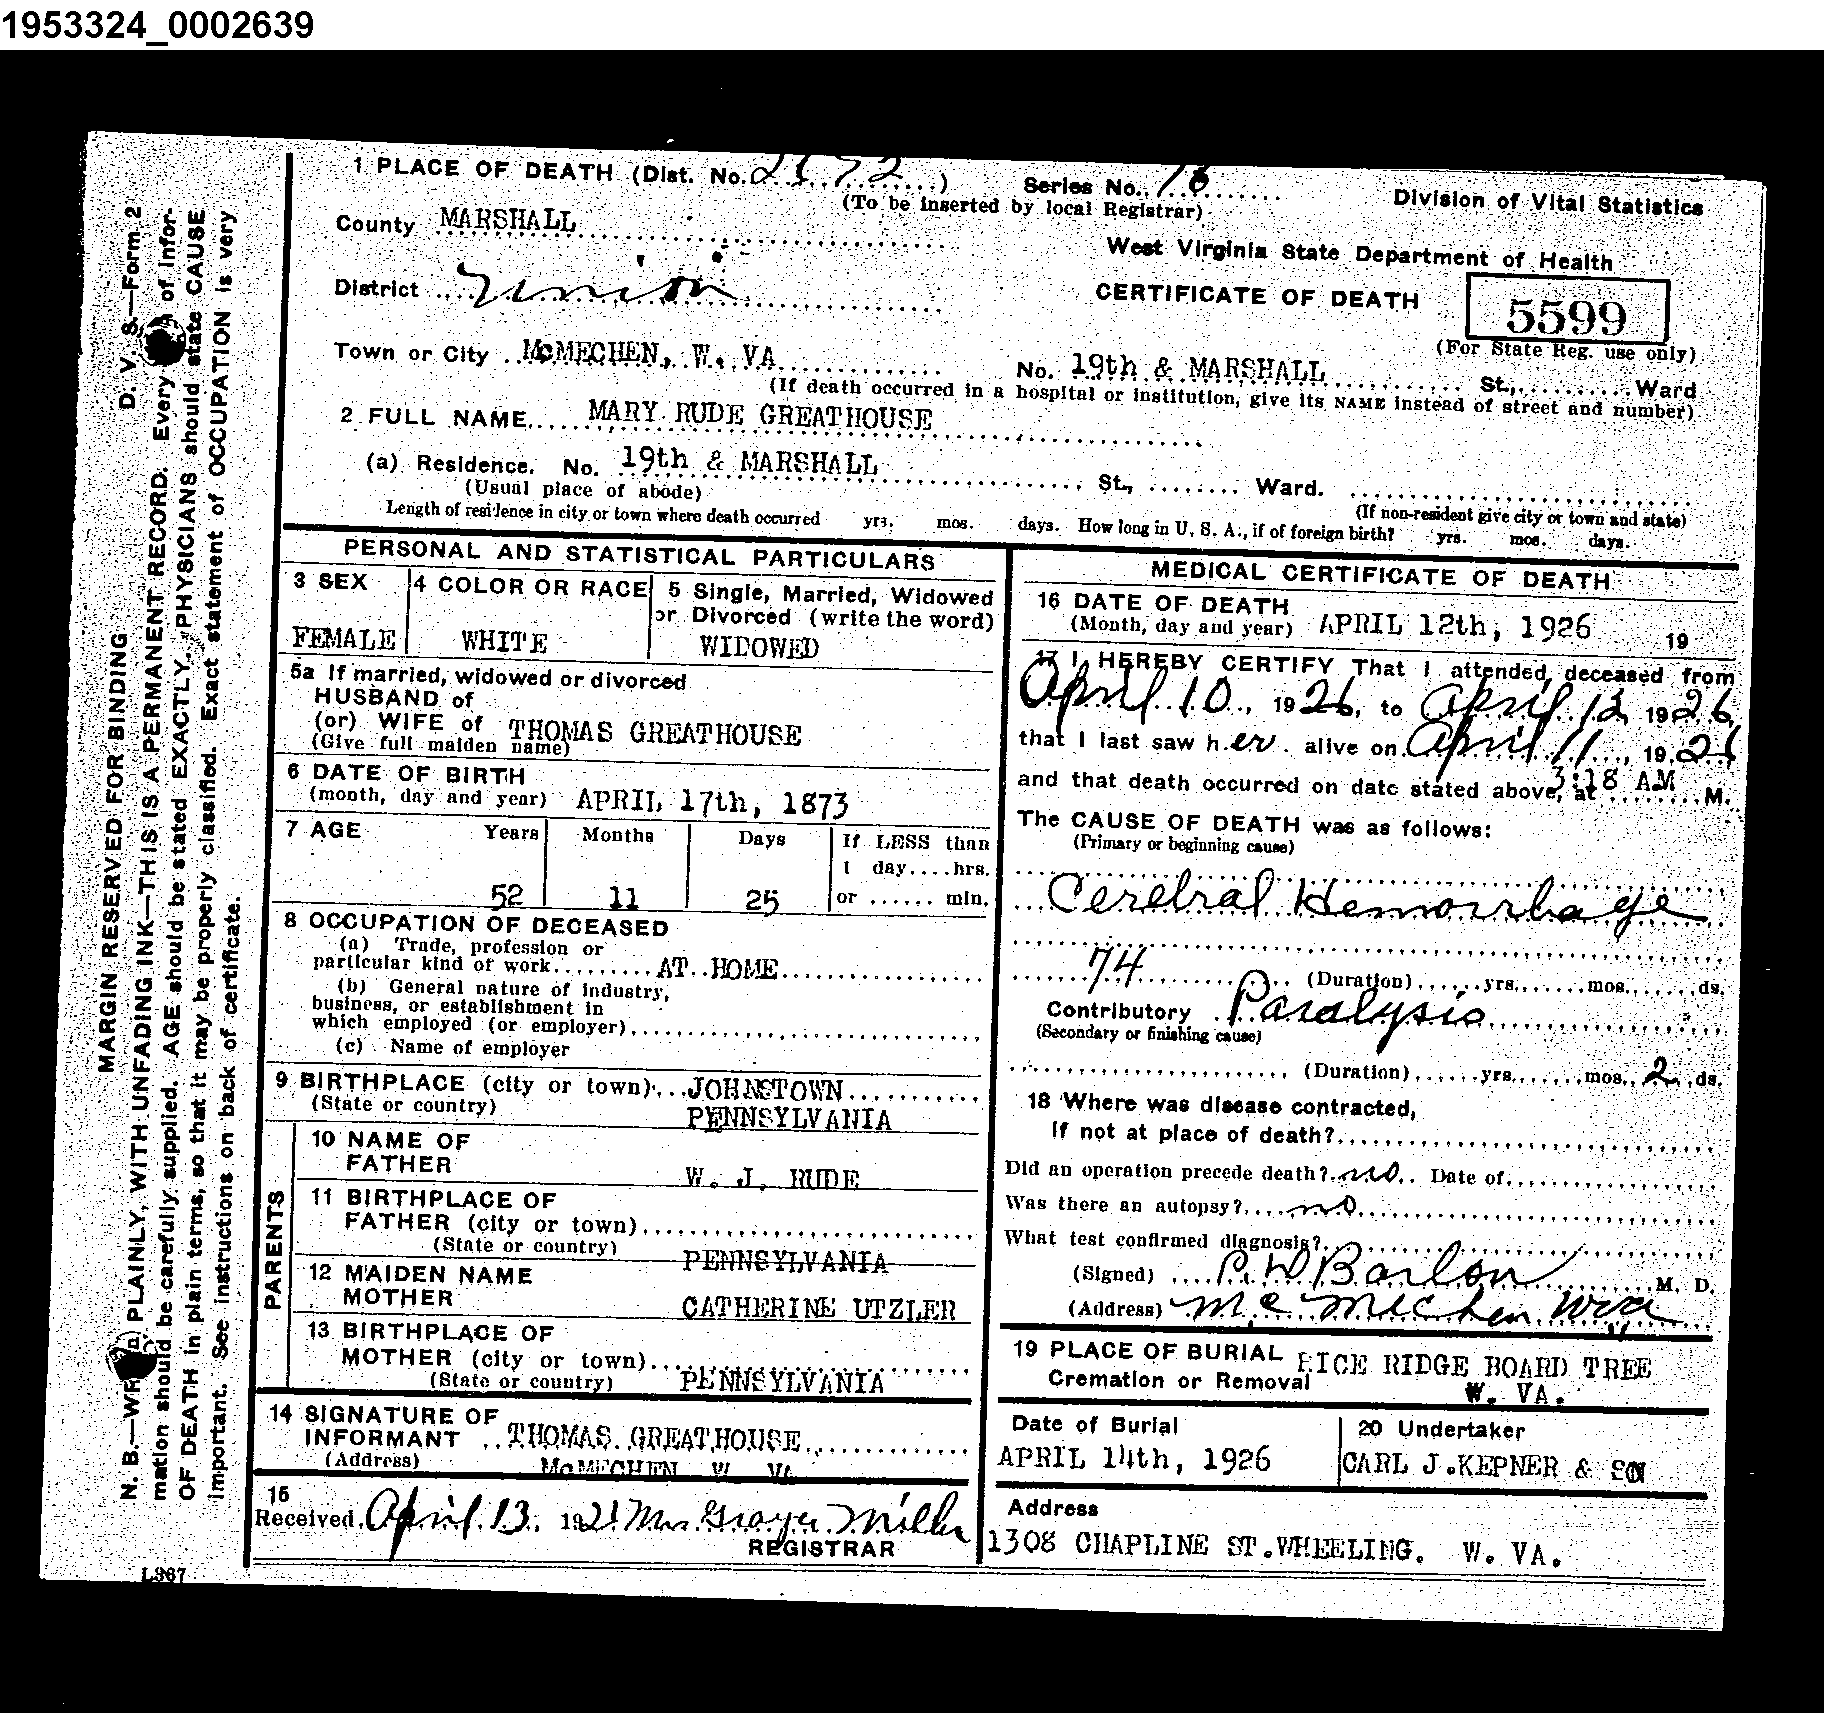 1953324_0002639
1 PLACE OF DEATH (Dist. No. ) Series No. Division of Vital Statistics
(To be inserted by local Registrar)
County MARSHALL
West Virginia State Department of Health
District Union
CERTIFICATE OF DEATH
5599
(For State Reg. use only)
Town or City McMECHEN, W. VA No. 19th & MARSHALL St., Ward
(If death occurred in a hospital or institution, give its NAME instead of street and number)
2 FULL NAME MARY RUDE GREATHOUSE
(a) Residence. No. 19th & MARSHALL St., Ward.
(Usual place of abode) (If non-resident give city or town and state)
Length of residence in city or town where death occurred yrs. mos. days. How long in U. S. A., if of foreign birth? yrs. mos. days.
PERSONAL AND STATISTICAL PARTICULARS
3 SEX 4 COLOR OR RACE 5 Single, Married, Widowed
or Divorced (write the word)
FEMALE WHITE WIDOWED
5a If married, widowed or divorced
HUSBAND of
(or) WIFE of THOMAS GREATHOUSE
(Give full maiden name)
6 DATE OF BIRTH
(month, day and year) APRIL 17th, 1873
7 AGE Years Months Days If LESS than
1 day....hrs.
52 11 25 or ...... min.
8 OCCUPATION OF DECEASED
(a) Trade, profession or
particular kind of work AT HOME
(b) General nature of industry,
business, or establishment in
which employed (or employer)
(c) Name of employer
9 BIRTHPLACE (city or town) JOHNSTOWN
(State or country) PENNSYLVANIA
PARENTS
10 NAME OF
FATHER W. J. RUDE
11 BIRTHPLACE OF
FATHER (city or town)
(State or country) PENNSYLVANIA
12 MAIDEN NAME
MOTHER CATHERINE UTZLER
13 BIRTHPLACE OF
MOTHER (city or town)
(State or country) PENNSYLVANIA
14 SIGNATURE OF
INFORMANT THOMAS GREATHOUSE
(Address) McMECHEN W. VA
15
Received April 13, 192 Mrs Miller
REGISTRAR
L367
MEDICAL CERTIFICATE OF DEATH
16 DATE OF DEATH
(Month, day and year) APRIL 12th, 1926 19
17 I HEREBY CERTIFY That I attended deceased from
April 10, 1926, to April 12 1926,
that I last saw her alive on April 11, 1926
and that death occurred on date stated above, at 3:18 AM M.
The CAUSE OF DEATH was as follows:
(Primary or beginning cause)
Cerebral Hemorrhage
74 (Duration) yrs. mos. ds.
Contributory Paralysis
(Secondary or finishing cause)
(Duration) yrs. mos. 2 ds.
18 Where was disease contracted,
If not at place of death?
Did an operation precede death? no Date of
Was there an autopsy? no
What test confirmed diagnosis?
(Signed) M. D.
(Address) McMechen W Va
19 PLACE OF BURIAL RICE RIDGE BOARD TREE
Cremation or Removal W. VA.
Date of Burial 20 Undertaker
APRIL 14th, 1926 CARL J. KEPNER & SON
Address
1308 CHAPLINE ST. WHEELING. W. VA.
MARGIN RESERVED FOR BINDING D. V. S.—Form 2
N. B.—WR PLAINLY, WITH UNFADING INK—THIS IS A PERMANENT RECORD. Every of infor-
mation should be carefully supplied. AGE should be stated EXACTLY. PHYSICIANS should state CAUSE
OF DEATH in plain terms, so that it may be properly classified. Exact statement of OCCUPATION is very
important. See instructions on back of certificate.